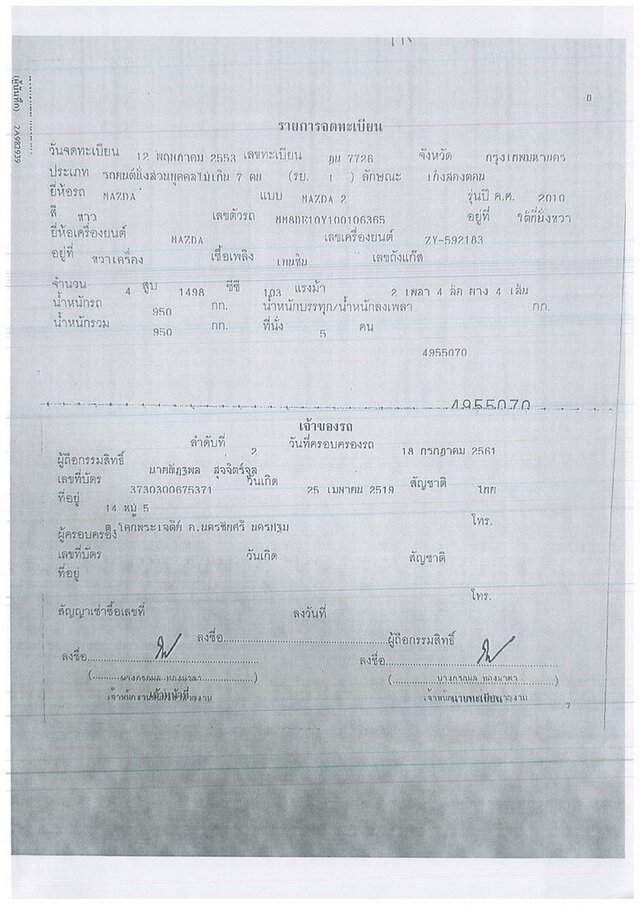 8
(ผู้บันทึก) 2A982939
รายการจดทะเบียน
วันจดทะเบียน 12 พฤษภาคม 2553 เลขทะเบียน 7726 จังหวัด กรุงเทพมหานคร
ประเภท รถยนต์นั่งส่วนบุคคลไม่เกิน 7 คน (รย. 1 ) ลักษณะ เก๋งสองตอน
ยี่ห้อรถ MAZDA แบบ MAZDA 2 รุ่นปี ค.ศ. 2010
สี ขาว เลขตัวรถ MM8DE10Y100106365 อยู่ที่ ใต้ที่นั่งขวา
ยี่ห้อเครื่องยนต์ MAZDA เลขเครื่องยนต์ ZY-592183
อยู่ที่ ขวาเครื่อง เชื้อเพลิง เบนซิน เลขถังแก๊ส
จำนวน 4 สูบ 1498 ซีซี 103 แรงม้า 2 เพลา 4 ล้อ ยาง 4 เส้น
น้ำหนักรถ 950 กก. น้ำหนักบรรทุก/น้ำหนักลงเพลา กก.
น้ำหนักรวม 950 กก. ที่นั่ง 5 คน
4955070
4955070
เจ้าของรถ
ลำดับที่ 2 วันที่ครอบครองรถ 18 กรกฎาคม 2561
ผู้ถือกรรมสิทธิ์ สุจจิตร์จูล
เลขที่บัตร 3730300675371 วันเกิด 25 เมษายน 2519 สัญชาติ ไทย
ที่อยู่ 14 หมู่ 5
ต.โคกพระเจดีย์ อ.นครชัยศรี นครปฐม โทร.
ผู้ครอบครอง
เลขที่บัตร วันเกิด สัญชาติ
ที่อยู่
โทร.
สัญญาเช่าซื้อเลขที่ ลงวันที่
ลงชื่อ ผู้ถือกรรมสิทธิ์
ลงชื่อ ลงชื่อ
เจ้าหน้าที่ นายทะเบียน
7